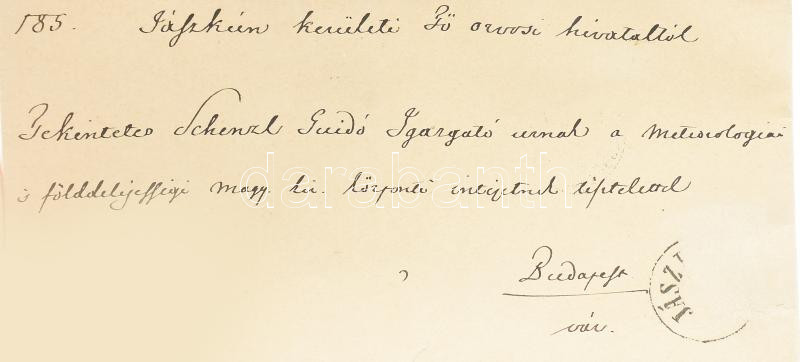 185. Jászkún kerületi Fő orvosi hivataltól
Tekintetes Schenzl Guidó Igazgató urnak a Meteorologiai
és földdelejességi magy. kir. központi intézetnek tisztelettel
darabanth
Budapest
vár.
JÁSZ